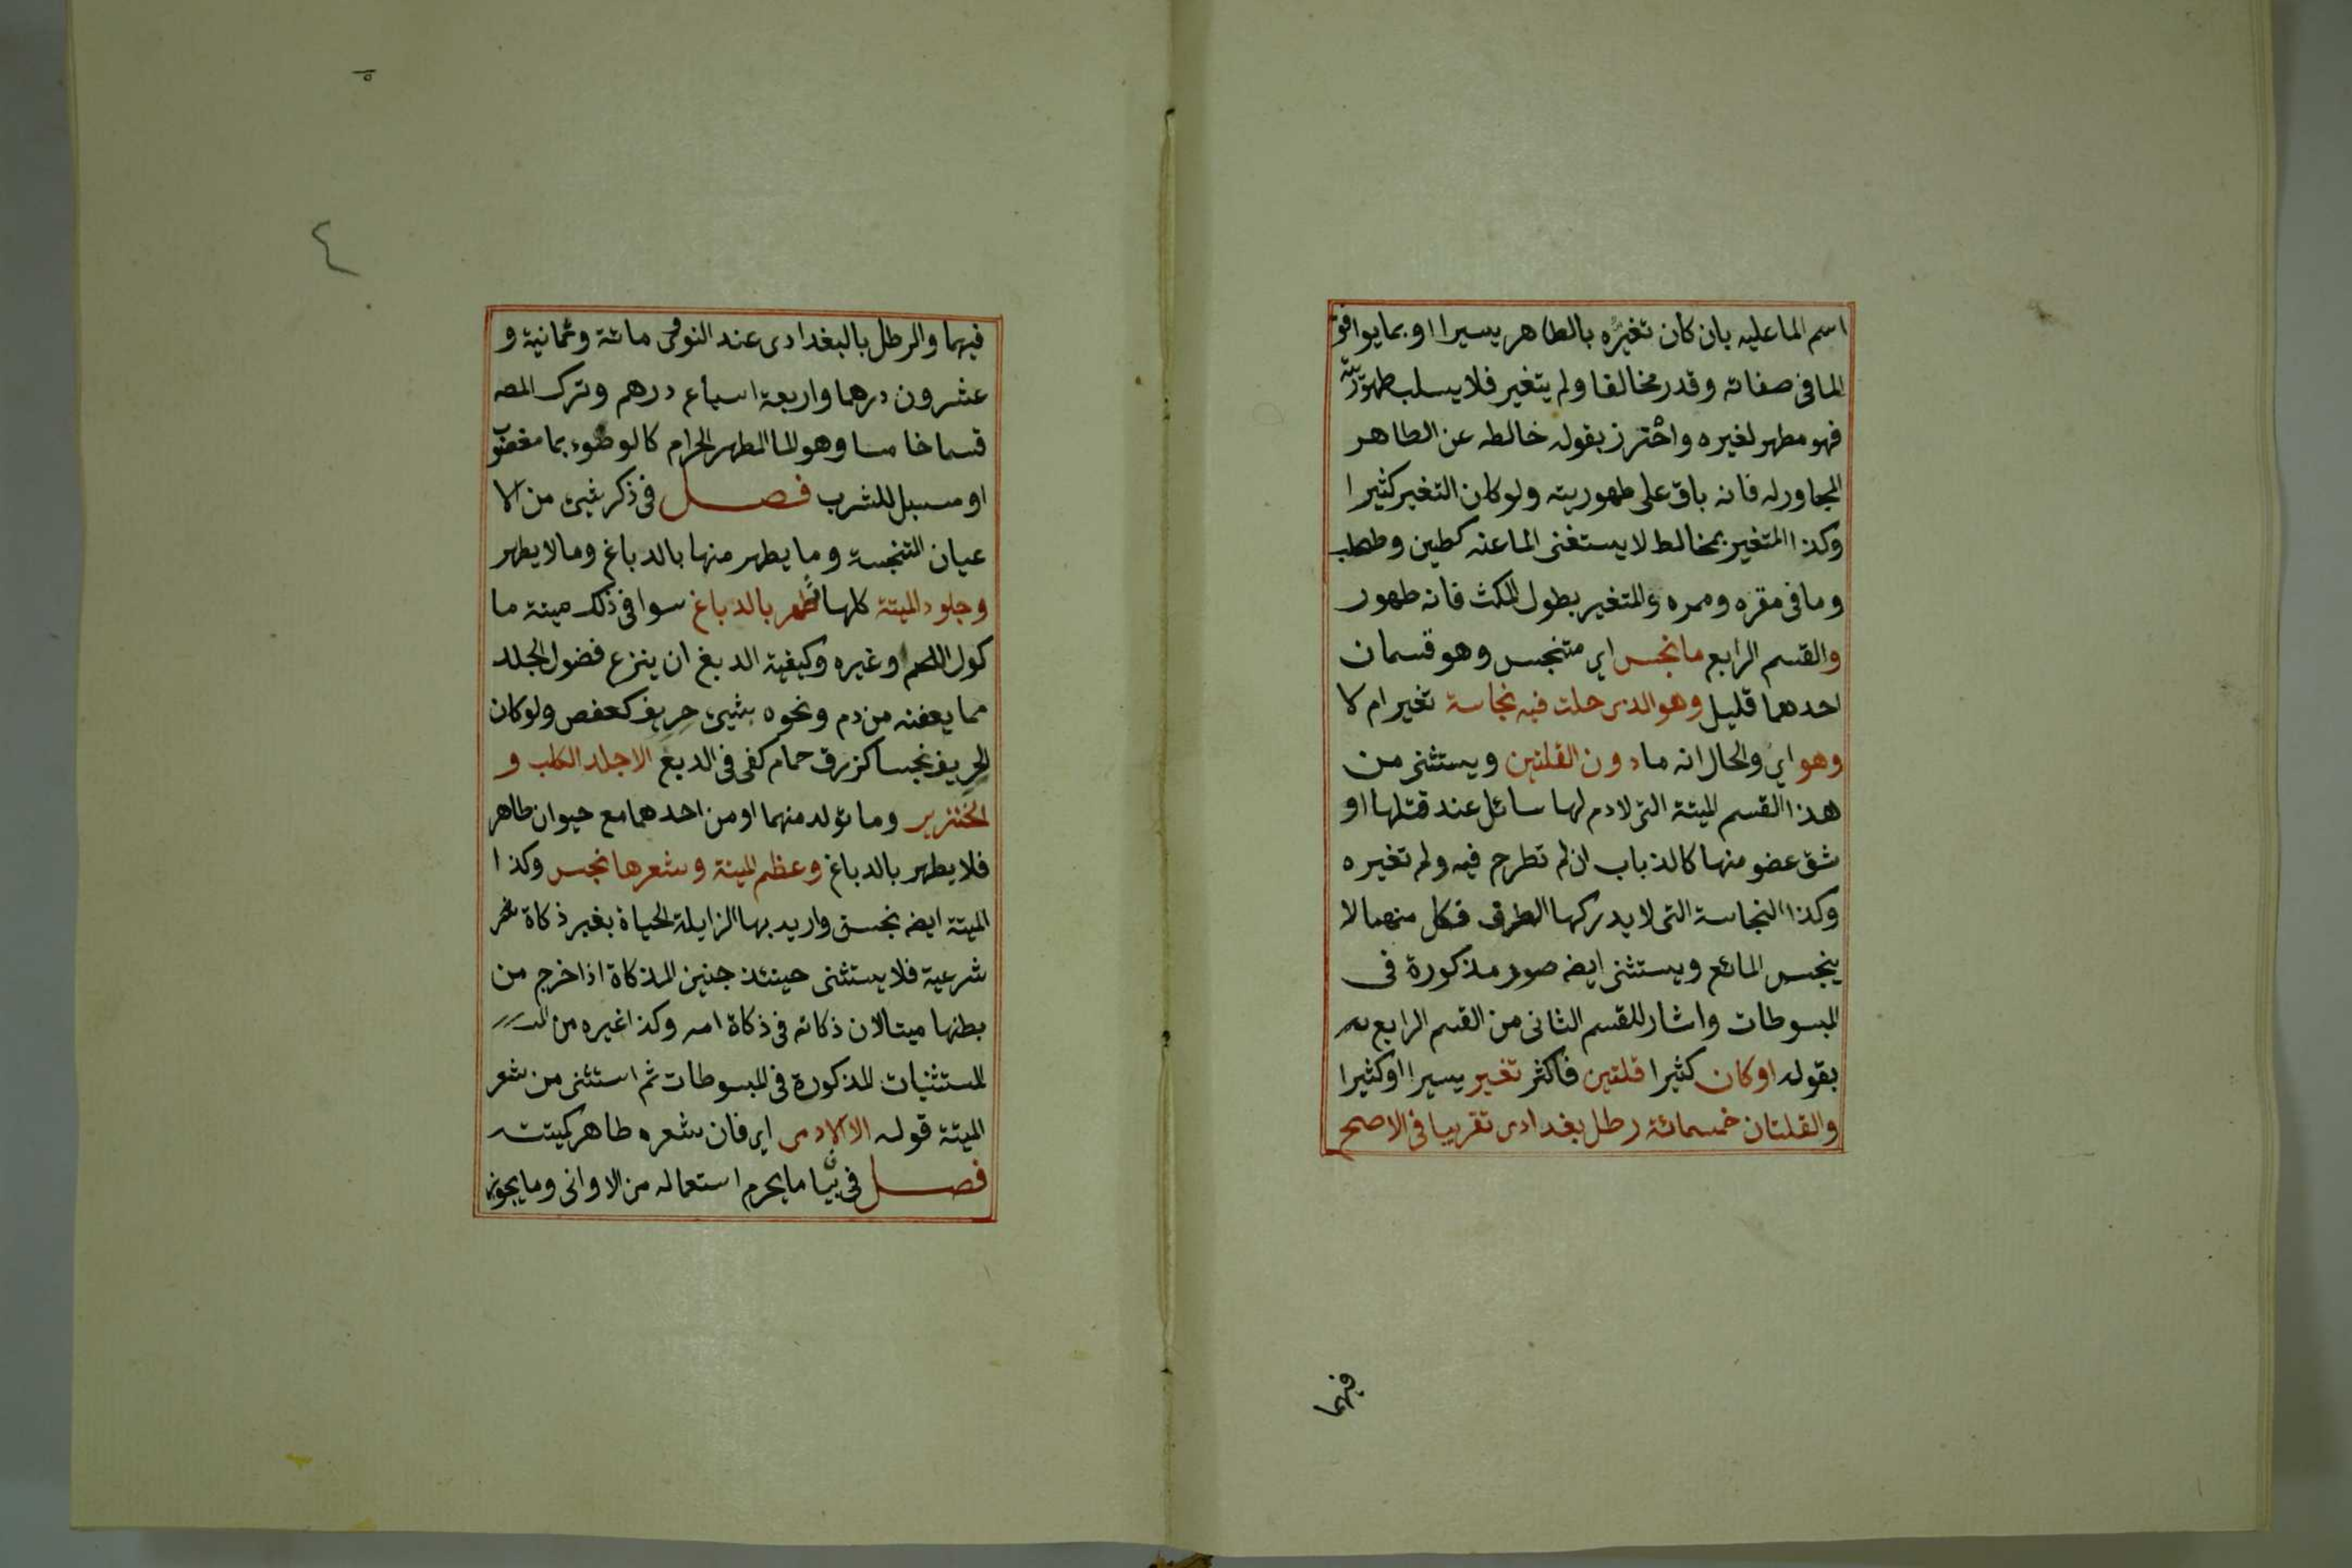 اسم الما عليه بان كان تغيره بالطاهر يسيرا او بما يوافق
الما فى صفاته وقدر مخالفا ولم يتغير فلا يسلب طهوريته
فهو مطهر لغيره واحترز بقوله خالطه عن الطاهر
المجاور له فانه باق على طهوريته ولو كان التغير كثيرا
وكذا المتغير بمخالط لا يستغنى الما عنه كطين وطحلب
وما فى مقره وممره والمتغير بطول المكث فانه طهور
والقسم الرابع ما نجس اي متنجس وهو قسمان
احدهما قليل وهو الذى حلت فيه نجاسة تغير ام لا
وهو اي والحال انه ما دون القلتين ويستثنى من
هذا القسم الميتة التى لا دم لها سائل عند قتلها او
شق عضو منها كالذباب ان لم تطرح فيه ولم تغيره
وكذا النجاسة التى لا يدركها الطرف فكل منهما لا
ينجس المائع ويستثنى ايضه صور مذكورة فى
المبسوطات واشار للقسم الثانى من القسم الرابع
بقوله او كان كثيرا قلتين فاكثر تغير يسيرا او كثيرا
والقلتان خمسمائة رطل بغدادى تقريبا فى الاصح
فيهما
٥
٤
فيهما والرطل بالبغدادى عند النووى مائة وثمانية و
عشرون درهما واربعة اسباع درهم وترك المصه
قسما خامسا وهو الما المطهر الحرام كالوضوء بما مغصوب
او مسبل للشرب فصل فى ذكر شيئ من الا
عيان المتنجسة وما يطهر منها بالدباغ وما لا يطهر
وجلود الميتة كلها تطهر بالدباغ سوا فى ذلك ميتة ما
كول اللحم وغيره وكيفية الدبغ ان ينزع فضول الجلد
مما يعفنه من دم ونحوه بشيئ حريف كعفص ولو كان
الحريف نجسا كزرق حمام كفى فى الدبغ الا جلد الكلب و
الخنزير وما تولد منهما او من احدهما مع حيوان طاهر
فلا يطهر بالدباغ وعظم الميتة وشعرها نجس وكذا
الميتة ايضه نجسة واريد بها الزايلة الحياة بغير ذكاة
شرعية فلا يستثنى حينئذ جنين المذكاة اذا خرج من
بطنها ميتا لان ذكاته فى ذكاة امه وكذا غيره من
المستثنيات المذكورة فى المبسوطات ثم استثنى من شعر
الميتة قوله الا الادمى اي فان شعره طاهر كميتته
فصل فى بيان ما يحرم استعماله من الاوانى وما يجوز